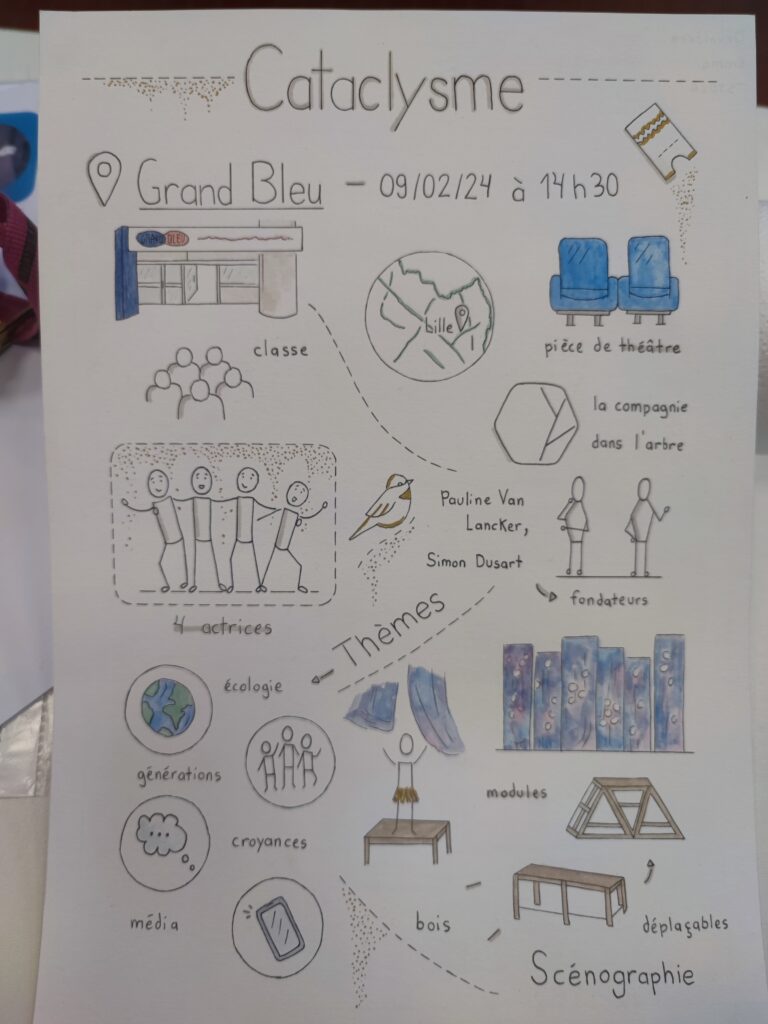 Cataclysme
Grand Bleu - 09/02/24 à 14h30
GRAND BLEU
lille
classe
pièce de théâtre
la compagnie
dans l'arbre
Pauline Van
Lancker,
Simon Dusart
fondateurs
4 actrices
Thèmes
écologie
générations
croyances
média
modules
bois
déplaçables
Scénographie